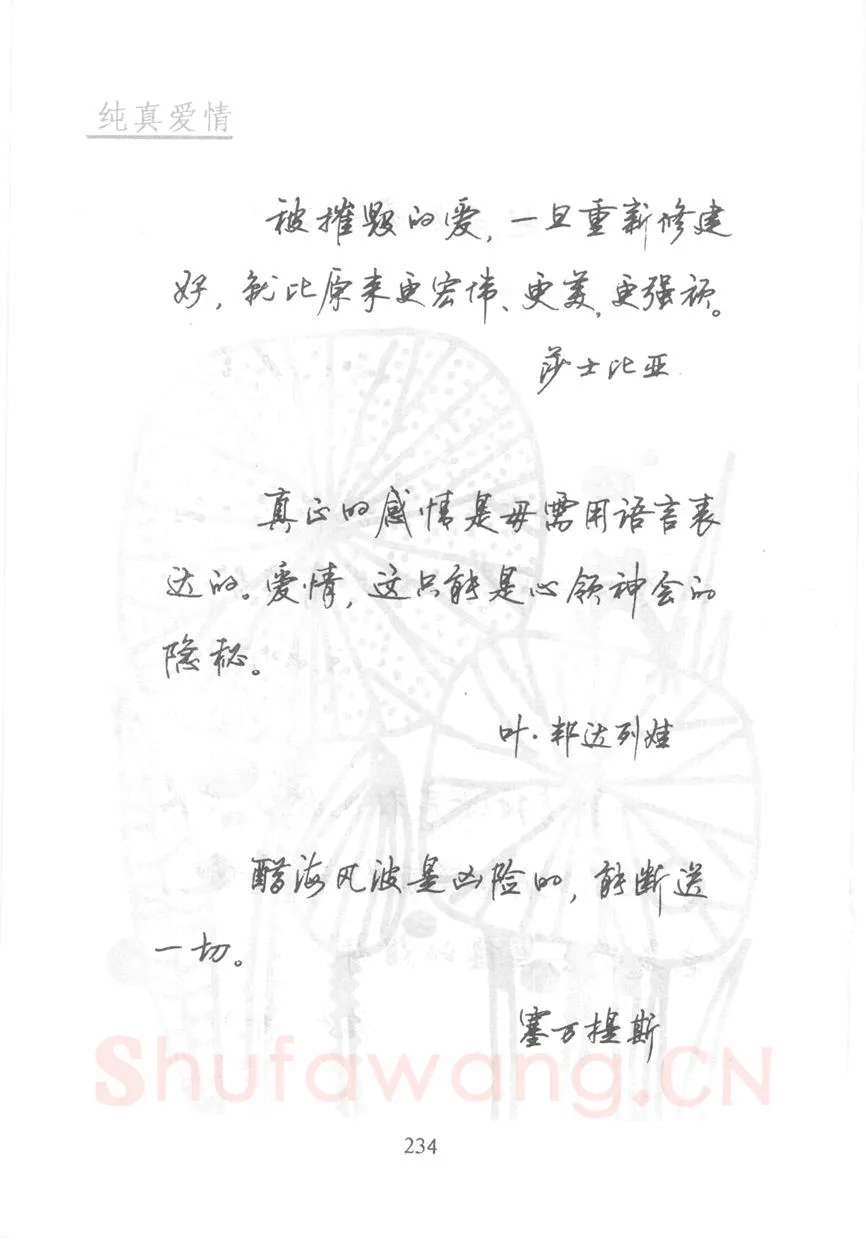 纯真爱情
被摧毁的爱,一旦重新修建
好,就比原来更宏伟、更美,更强顽。
莎士比亚
真正的感情是毋需用语言表
达的。爱情,这只能是心领神会的
隐秘。
叶·邦达列娃
醋海风波是凶险的,能断送
一切。
塞万提斯
Shufawang.CN
234